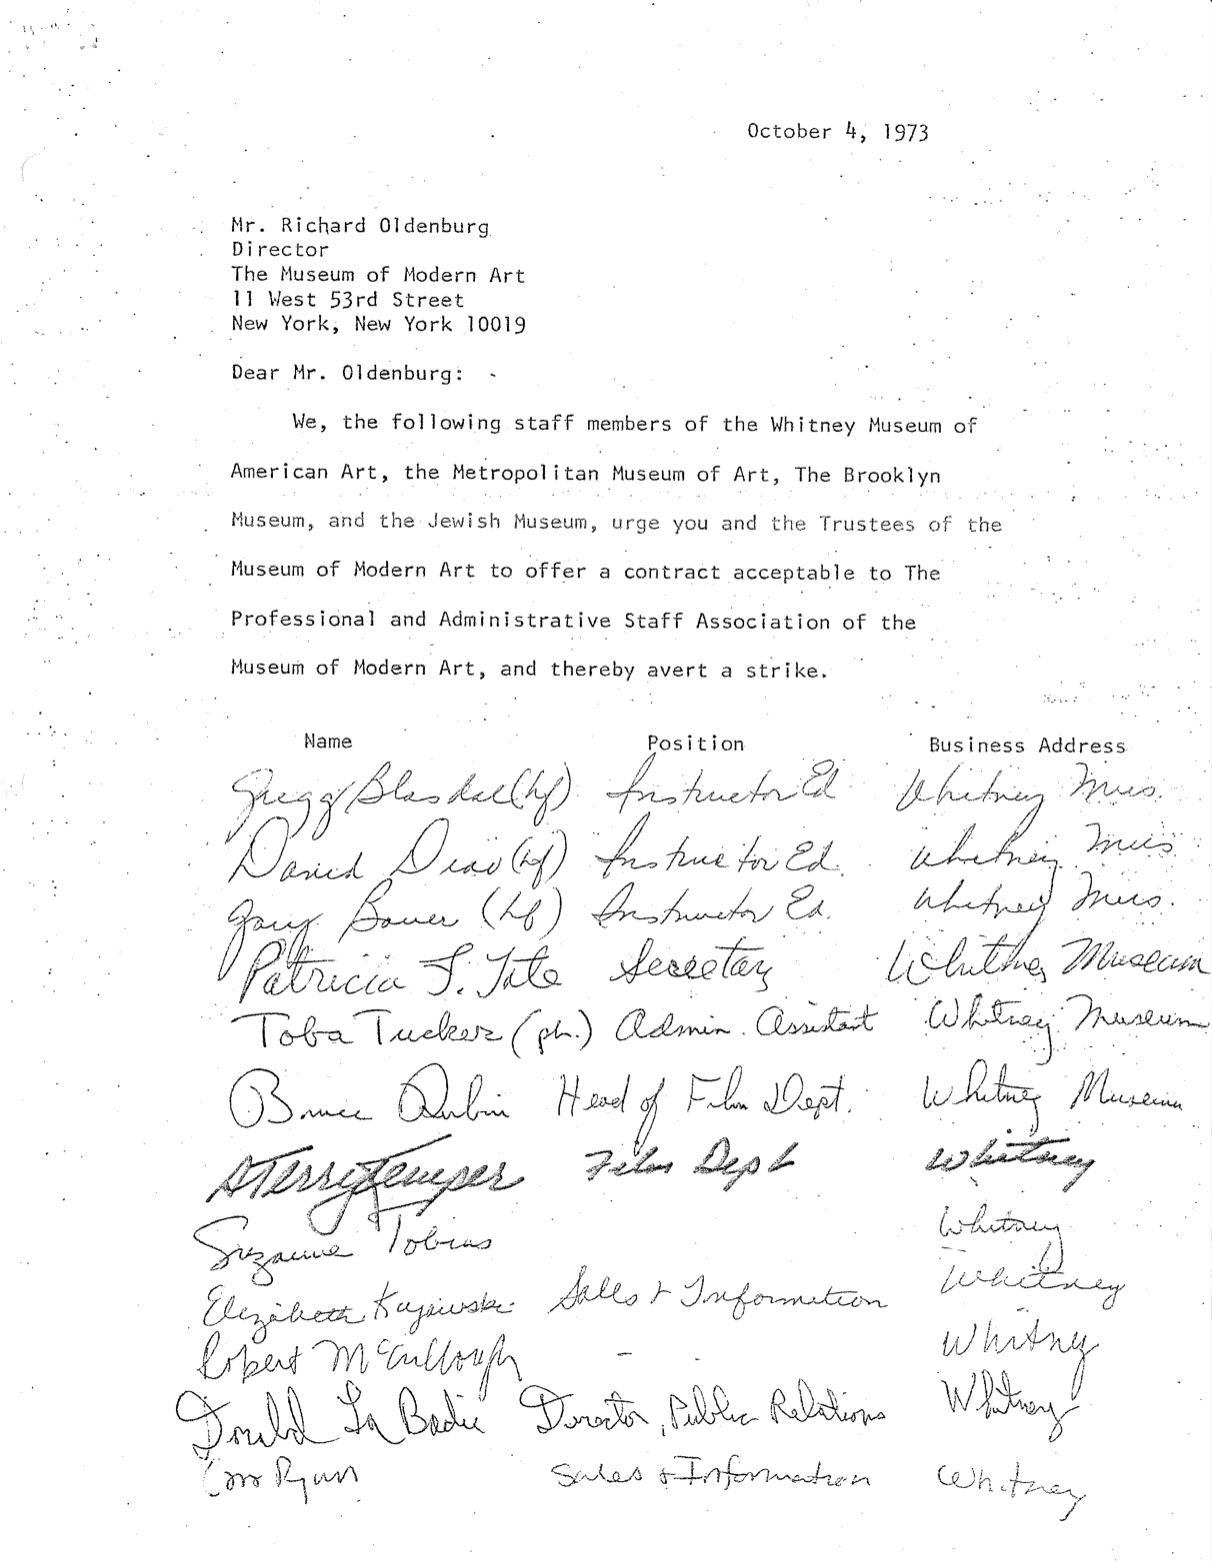 October 4, 1973
Mr. Richard Oldenburg
Director
The Museum of Modern Art
11 West 53rd Street
New York, New York 10019
Dear Mr. Oldenburg:
We, the following staff members of the Whitney Museum of
American Art, the Metropolitan Museum of Art, The Brooklyn
Museum, and the Jewish Museum, urge you and the Trustees of the
Museum of Modern Art to offer a contract acceptable to The
Professional and Administrative Staff Association of the
Museum of Modern Art, and thereby avert a strike.
Name Position Business Address
Gregg Blasdel Instructor Ed Whitney Mus.
David Diao Instructor Ed. Whitney Mus
Gary Bower Instructor Ed. Whitney Mus.
Patricia Tate Secretary Whitney Museum
Toba Tucker (ph.) Admin. Assistant Whitney Museum
Bruce Rubin Head of Film Dept. Whitney Museum
Terry Kemper Film Dept Whitney
Suzanne Tobias Whitney
Elizabeth Sales & Information Whitney
Robert McCullough - Whitney
Donald La Badie Director, Public Relations Whitney
Ryan Sales & Information Whitney